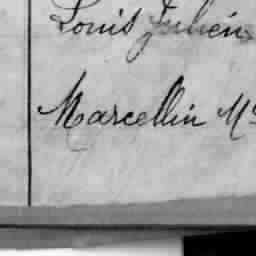 Louis Julien
Marcellin